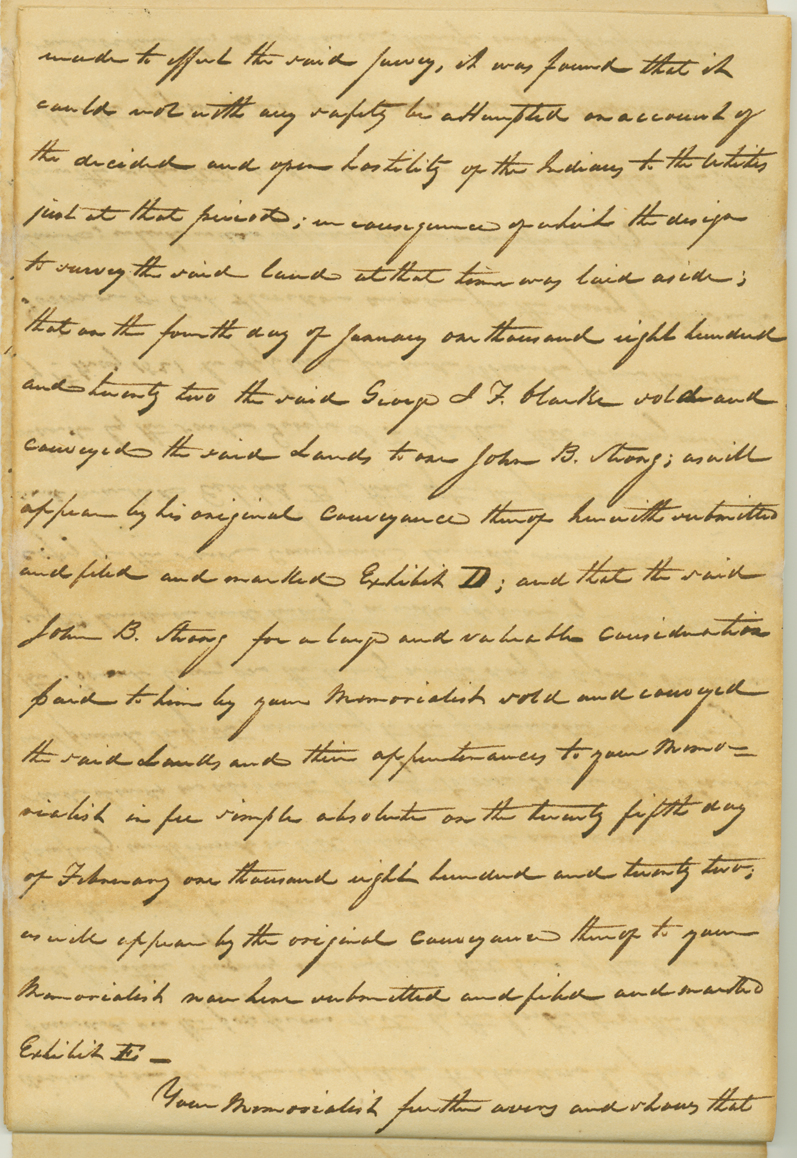 made to effect the said survey, it was found that it
could not with any safety be attempted on account of
the decided and open hostility of the Indians to the Whites
just at that period; in consequence of which the design
to survey the said land at that time was laid aside;
that on the fourth day of January one thousand eight hundred
and twenty two the said George J. F. Clarke sold and
conveyed the said Lands to one John B. Strong; as will
appear by his original Conveyance thereof herewith submitted
and filed and marked Exhibit D; and that the said
John B. Strong for a large and valuable Consideration
paid to him by your Memorialist sold and conveyed
the said Lands and their appurtenances to your Memo=
rialist in fee simple absolute on the twenty fifth day
of February one thousand eight hundred and twenty two;
as will appear by the original Conveyance thereof to your
Memorialist now here submitted and filed and marked
Exhibit E —
Your Memorialist further avers and shows that